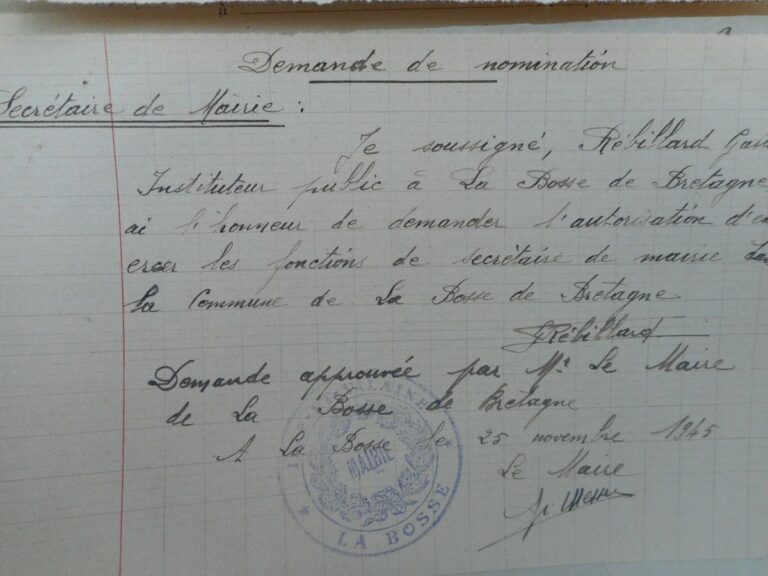 à
Demande de nomination
Secrétaire de Mairie :
Je soussigné, Rébillard Gast
Instituteur public à La Bosse de Bretagne,
ai l'honneur de demander l'autorisation d'ex
ercer les fonctions de secrétaire de mairie da
la Commune de La Bosse de Bretagne
GRébillard
Demande approuvée par Mr Le Maire
de La Bosse de Bretagne
A La Bosse le 25 novembre 1945
Le Maire
MAIRIE
LA BOSSE